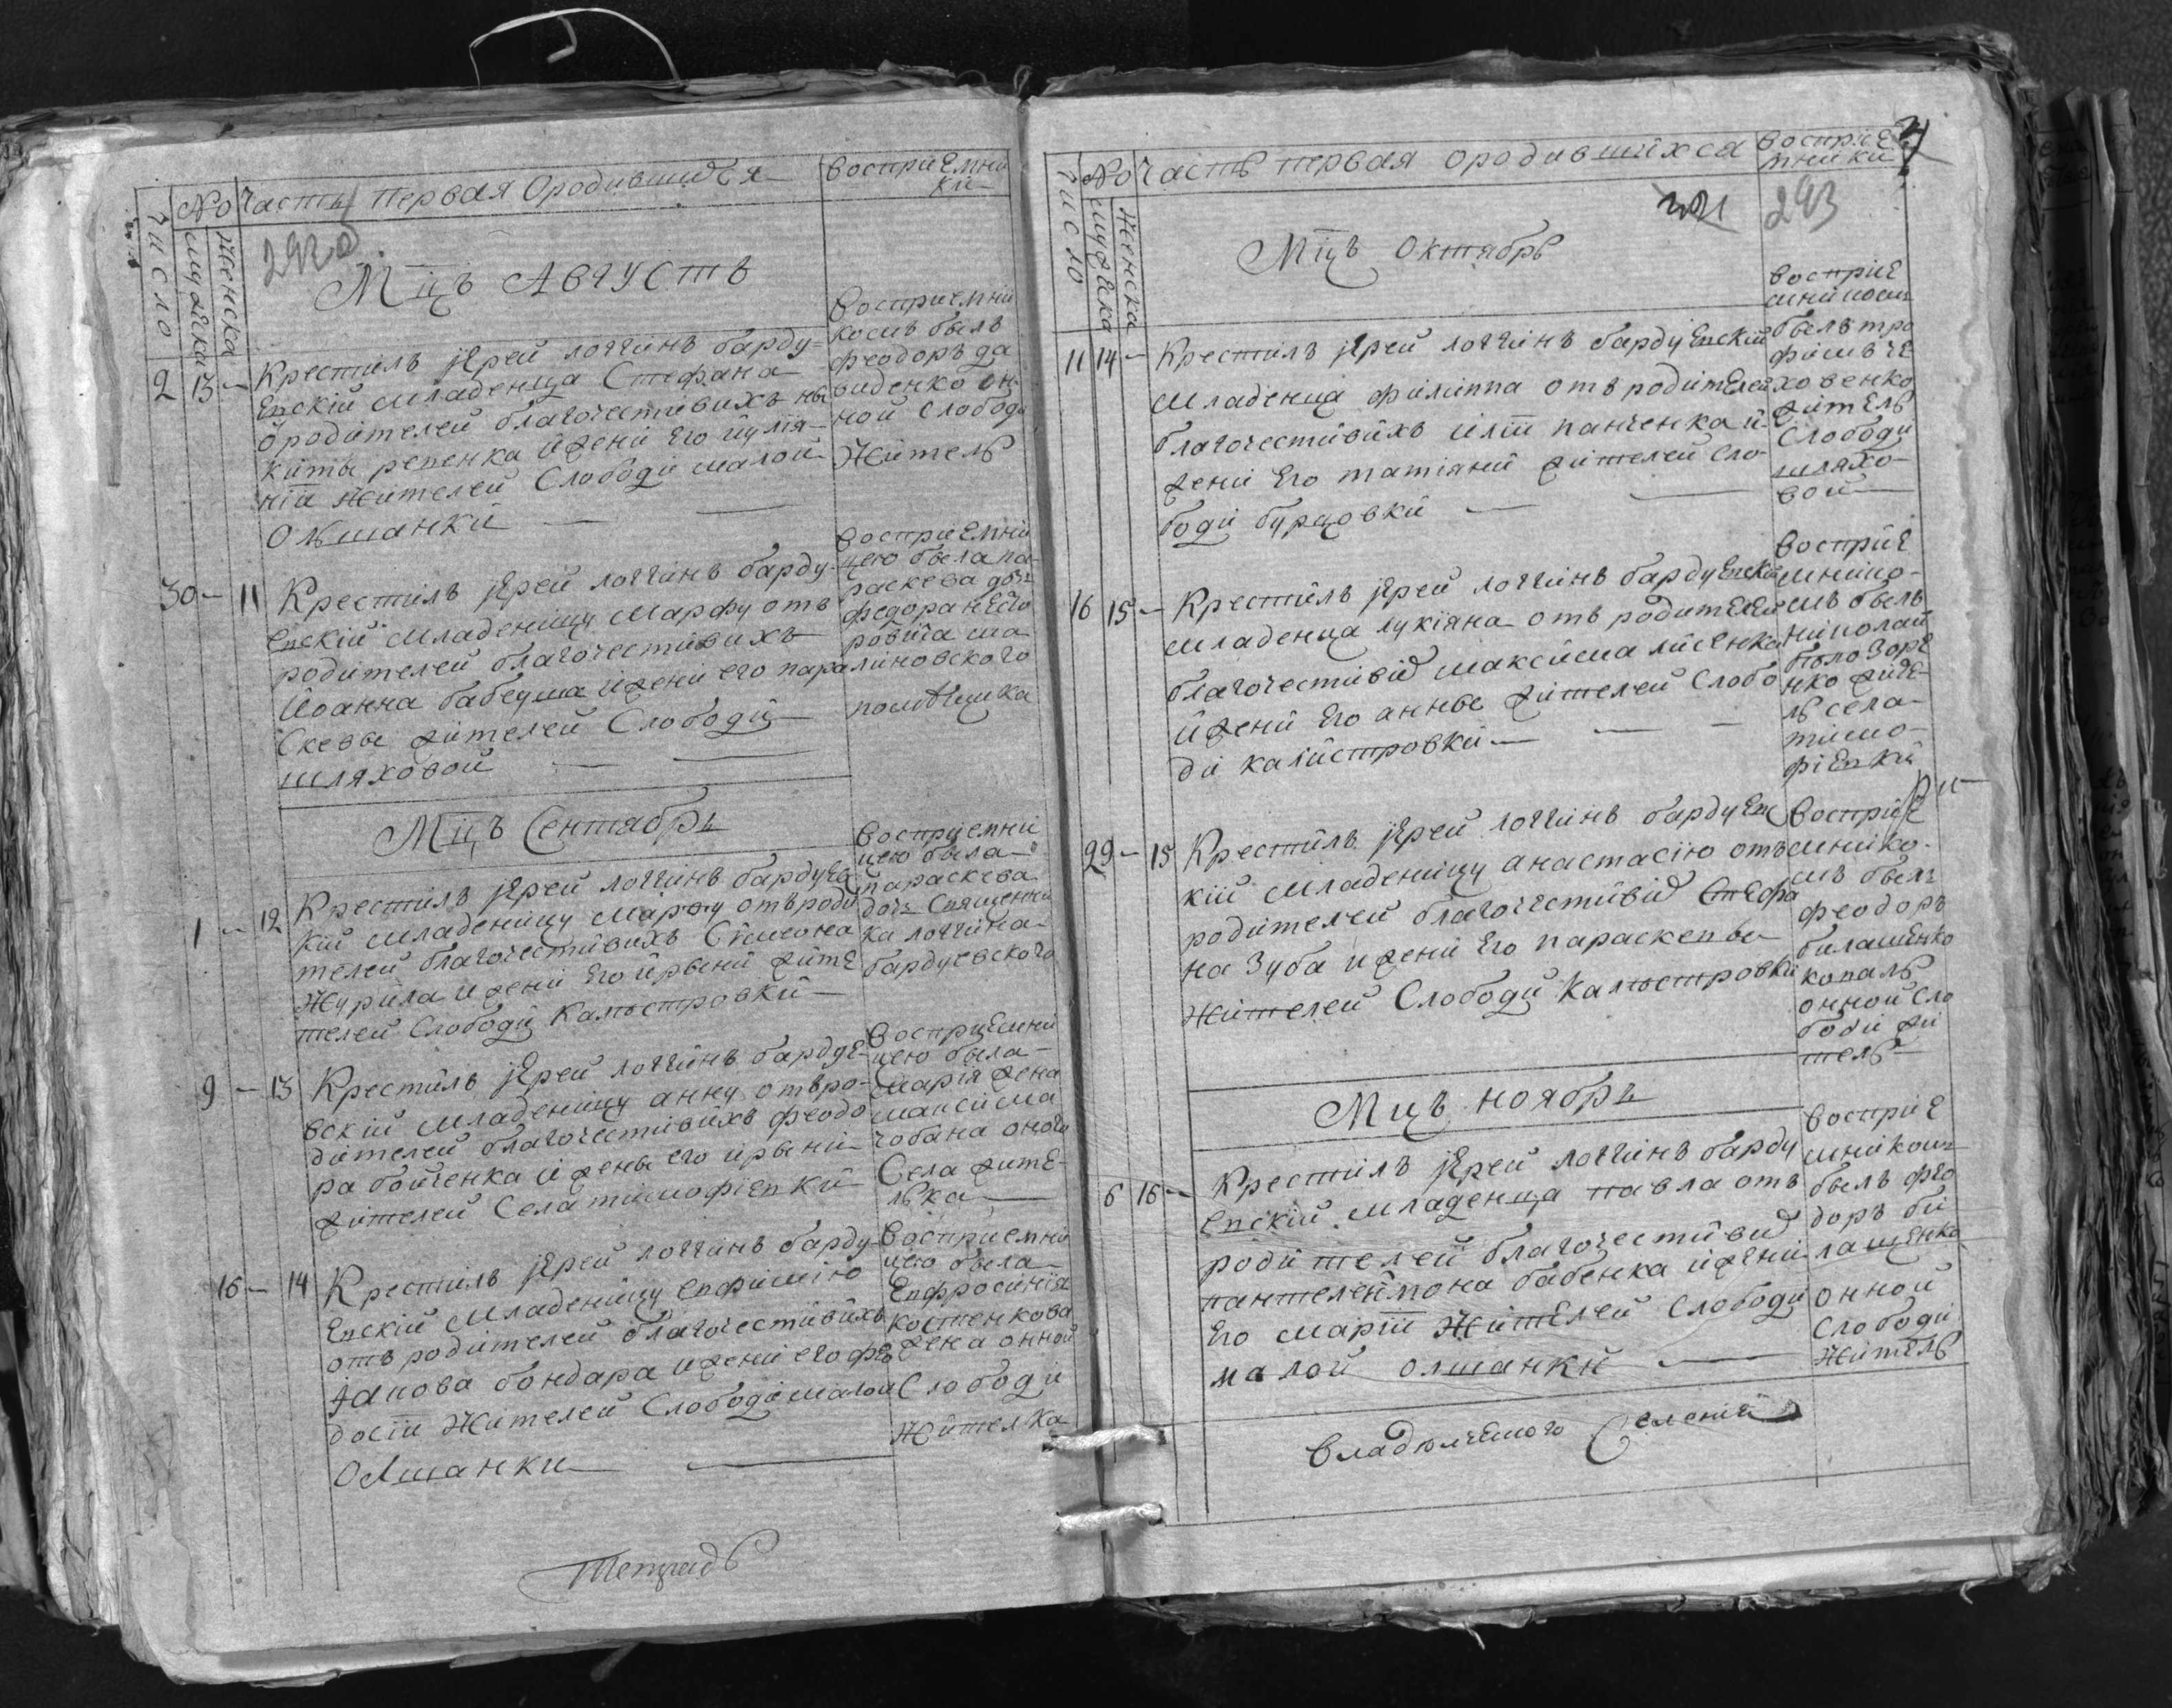 Число
No
мужеска
женска
Часть первая Ородившихся
восприемни
ки
292об
Мⷭ҇цъ Августъ
2 13 – Крестилъ іерей логгинъ барду-
евскій младенца Стефана
ѿ родителей благочестивихъ ни
киты репенка и жени его иулія
ніи жителей Слободи малой
Ольшанки
восприемни
комъ былъ
феодоръ да
виденко он
ной слободи
житель
30 – 11 Крестилъ іерей логгинъ барду
евскій младеницу марфу отъ
родителей благочестивихъ
Иоанна бабеуша и жени его пара
скевы жителей Слободи
шляховой
восприемни
цею была па
раскева дочь
федора
ровича ма
линовского
Мⷭ҇цъ Сентябрь
1 – 12 Крестилъ іерей логгинъ бардуевс
кій младеницу марфу отъ роди
телей благочестивихъ Симеона
журила и жени его ирыни жите
телей Слободи Калистровки
восприемни
цею была
параскева
дочь Священни
ка логгина
бардуевского
9 – 13 Крестилъ іерей логгинъ бардуе
вскій младеницу анну отъ ро-
дителей благочестивихъ феодо
ра бойченка и жены его ирыни
жителей Села тимофіевки
восприемни
цею была
марія жена
максима
чобана оного
Села жите-
лька
16 – 14 Крестилъ іерей логгинъ барду-
евскій младеницу евфимію
отъ родителей благочестивихъ
Іакова бондара и жени его фео
досіи жителей Слободи малой
Олшанки
восприемни
цею была
Евфросинія
костенкова
жена онной
Слободи
жителка
Тетрадь
Число
No
мужеска
женска
Часть первая ородившихся
восприе
мники
293
Мⷭ҇цъ Октябрь
11 14 – Крестилъ іерей логгинъ бардуевскій
младенца филиппа отъ родителей
благочестивихъ иліи панченка и
жени его татіани жителей сло
боди бурцовки
восприе
мникомъ
былъ тро
фимъ че
ховенко
житель
Слободи
шляхо-
вой
16 15 – Крестилъ іерей логгинъ бардуевскій
младенца лукіяна отъ родителей
благочестивих максима лисенка
и жени его анны жителей Слобо
ди калистровки
восприе
мнико-
мъ былъ
николай
билозоре
нко жите-
ль села
тимо-
фіевки
29 – 15 Крестилъ іерей логгинъ бардуевс
кій младеницу анастасію отъ
родителей благочестивих Стефа
на Зуба и жени его параскевы
жителей Слободи Калистровки
восприе
мнико-
мъ былъ
феодоръ
билашенко
коваль
онной сло
боди жи
тель
Мⷭ҇цъ ноябрь
6 16 – Крестилъ іерей логгинъ барду
евскій младенца павла отъ
родителей благочестивих
пантелеимона бабенка и жени
его маріи жителей Слободи
малой олшанки
восприе
мникомъ
былъ фео
доръ би
лашенко
онной
Слободи
житель